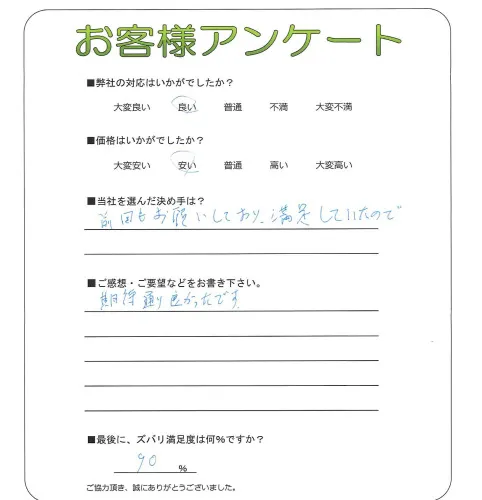 お客様アンケート
■弊社の対応はいかがでしたか？
大変良い 良い 普通 不満 大変不満
■価格はいかがでしたか？
大変安い 安い 普通 高い 大変高い
■当社を選んだ決め手は？
前回もお願いしており、満足していたので
■ご感想・ご要望などをお書き下さい。
期待通り良かったです
■最後に、ズバリ満足度は何%ですか？
90 %
ご協力頂き、誠にありがとうございました。